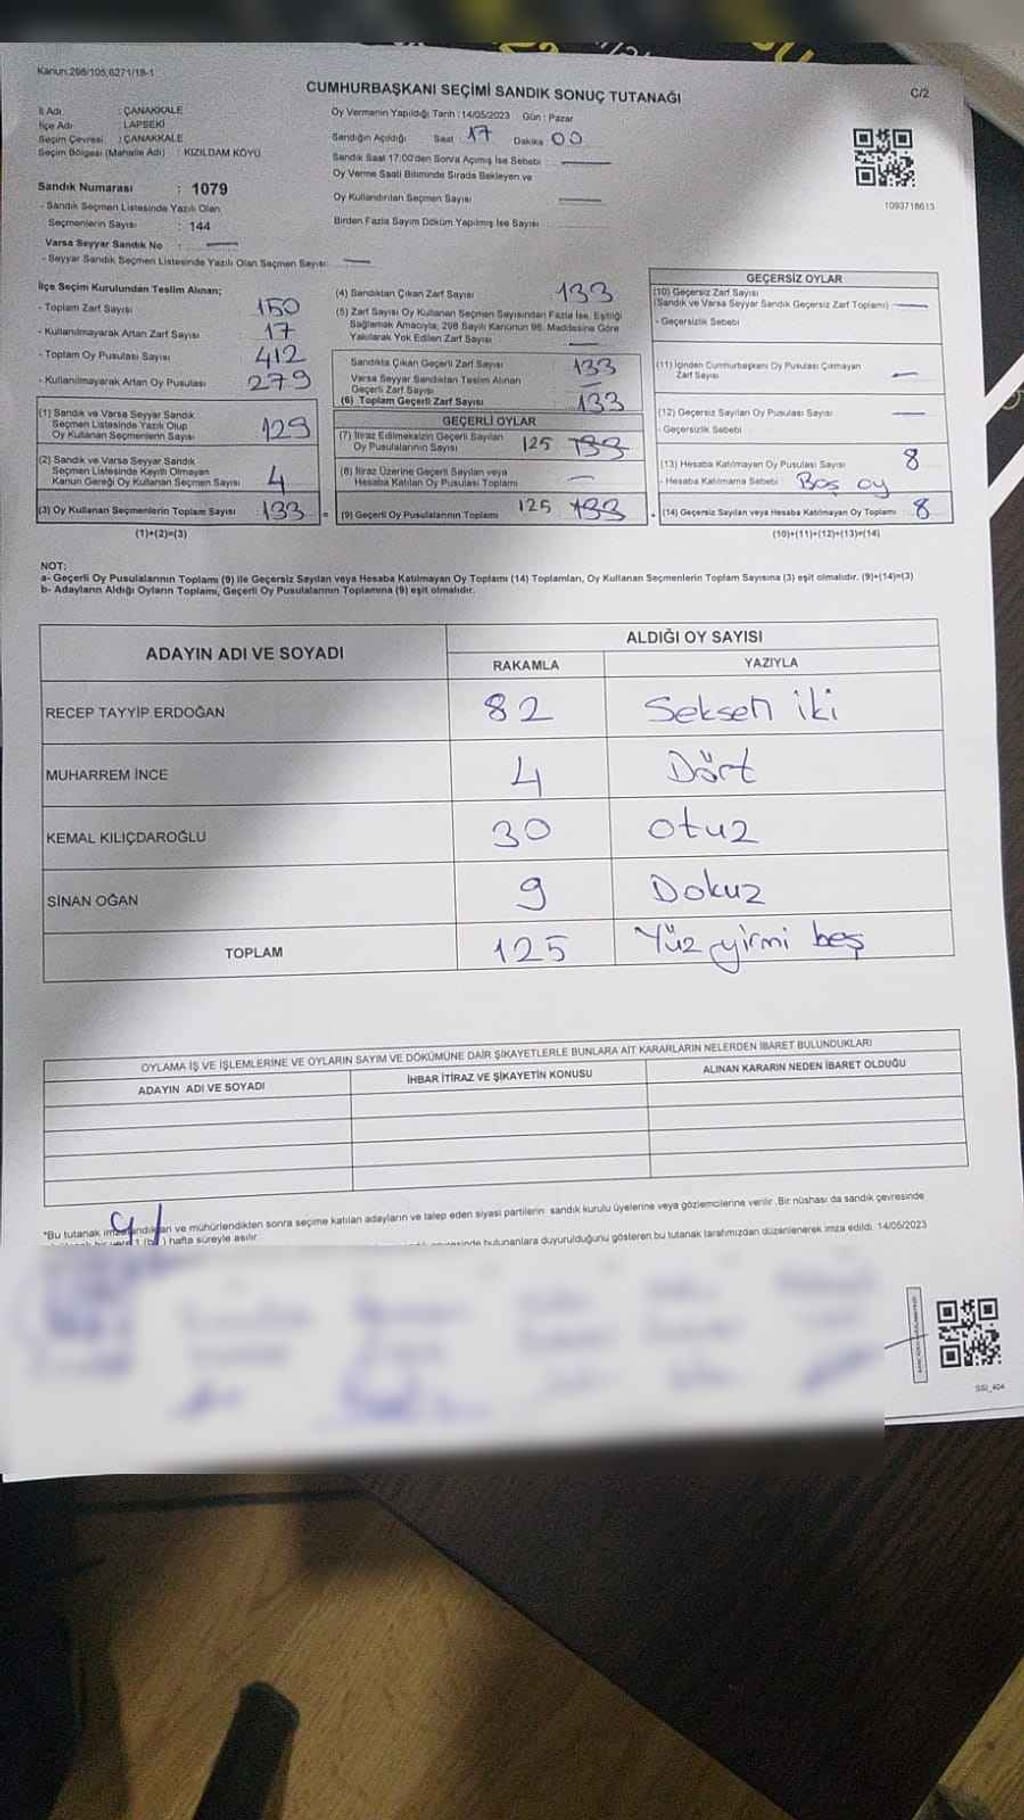 Kanun:298/105,6271/18-1
CUMHURBAŞKANI SEÇİMİ SANDIK SONUÇ TUTANAĞI
C/2
İl Adı : ÇANAKKALE
İlçe Adı : LAPSEKİ
Seçim Çevresi : ÇANAKKALE
Seçim Bölgesi (Mahalle Adı) : KIZILDAM KÖYÜ
Oy Vermenin Yapıldığı Tarih : 14/05/2023 Gün : Pazar
Sandığın Açıldığı Saat : 17 Dakika 00
Sandık Saat 17:00'den Sonra Açılmış İse Sebebi :
Oy Verme Saati Bitiminde Sırada Bekleyen ve
Oy Kullandırılan Seçmen Sayısı
Birden Fazla Sayım Döküm Yapılmış İse Sayısı
1093718615
Sandık Numarası : 1079
- Sandık Seçmen Listesinde Yazılı Olan
Seçmenlerin Sayısı : 144
Varsa Seyyar Sandık No :
- Seyyar Sandık Seçmen Listesinde Yazılı Olan Seçmen Sayısı:
İlçe Seçim Kurulundan Teslim Alınan;
- Toplam Zarf Sayısı 150
- Kullanılmayarak Artan Zarf Sayısı 17
- Toplam Oy Pusulası Sayısı 412
- Kullanılmayarak Artan Oy Pusulası 279
(1) Sandık ve Varsa Seyyar Sandık
Seçmen Listesinde Yazılı Olup
Oy Kullanan Seçmenlerin Sayısı 129
(2) Sandık ve Varsa Seyyar Sandık
Seçmen Listesinde Kayıtlı Olmayan
Kanun Gereği Oy Kullanan Seçmen Sayısı 4
(3) Oy Kullanan Seçmenlerin Toplam Sayısı 133 =
(1)+(2)=(3)
(4) Sandıktan Çıkan Zarf Sayısı 133
(5) Zarf Sayısı Oy Kullanan Seçmen Sayısından Fazla İse, Eşitliği
Sağlamak Amacıyla, 298 Sayılı Kanunun 98. Maddesine Göre
Yakılarak Yok Edilen Zarf Sayısı
Sandıkta Çıkan Geçerli Zarf Sayısı 133
Varsa Seyyar Sandıktan Teslim Alınan
Geçerli Zarf Sayısı
(6) Toplam Geçerli Zarf Sayısı 133
GEÇERLİ OYLAR
(7) İtiraz Edilmeksizin Geçerli Sayılan
Oy Pusulalarının Sayısı 125 133
(8) İtiraz Üzerine Geçerli Sayılan veya
Hesaba Katılan Oy Pusulası Toplamı
(9) Geçerli Oy Pusulalarının Toplamı 125 133 +
GEÇERSİZ OYLAR
(10) Geçersiz Zarf Sayısı
(Sandık ve Varsa Seyyar Sandık Geçersiz Zarf Toplamı)
- Geçersizlik Sebebi
(11) İçinden Cumhurbaşkanı Oy Pusulası Çıkmayan
Zarf Sayısı
(12) Geçersiz Sayılan Oy Pusulası Sayısı
- Geçersizlik Sebebi
(13) Hesaba Katılmayan Oy Pusulası Sayısı 8
- Hesaba Katılmama Sebebi Boş oy
(14) Geçersiz Sayılan veya Hesaba Katılmayan Oy Toplamı 8
(10)+(11)+(12)+(13)=(14)
NOT:
a- Geçerli Oy Pusulalarının Toplamı (9) ile Geçersiz Sayılan veya Hesaba Katılmayan Oy Toplamı (14) Toplamları, Oy Kullanan Seçmenlerin Toplam Sayısına (3) eşit olmalıdır. (9)+(14)=(3)
b- Adayların Aldığı Oyların Toplamı, Geçerli Oy Pusulalarının Toplamına (9) eşit olmalıdır.
ADAYIN ADI VE SOYADI
ALDIĞI OY SAYISI
RAKAMLA YAZIYLA
RECEP TAYYİP ERDOĞAN 82 Seksen iki
MUHARREM İNCE 4 Dört
KEMAL KILIÇDAROĞLU 30 otuz
SİNAN OĞAN 9 Dokuz
TOPLAM 125 Yüz yirmi beş
OYLAMA İŞ VE İŞLEMLERİNE VE OYLARIN SAYIM VE DÖKÜMÜNE DAİR ŞİKAYETLERLE BUNLARA AİT KARARLARIN NELERDEN İBARET BULUNDUKLARI
ADAYIN ADI VE SOYADI İHBAR İTİRAZ VE ŞİKAYETİN KONUSU ALINAN KARARIN NEDEN İBARET OLDUĞU
*Bu tutanak ve mühürlendikten sonra seçime katılan adayların ve talep eden siyasi partilerin sandık kurulu üyelerine veya gözlemcilerine verilir. Bir nüshası da sandık çevresinde
hafta süreyle asılır
bulunanlara duyurulduğunu gösteren bu tutanak tarafımızdan düzenlenerek imza edildi. 14/05/2023
SSI_404